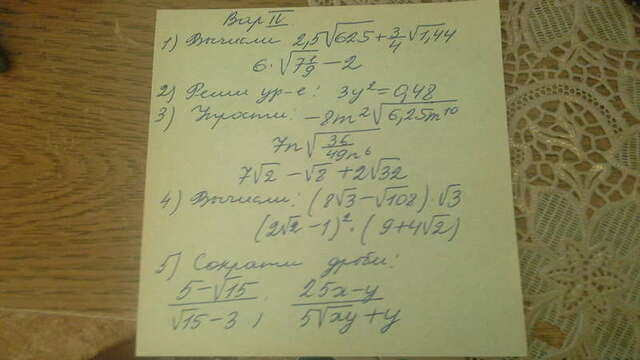 Вар IV
1) Вычисли 2,5√625 + 3/4 √1,44
6·√(7 1/9) − 2
2) Реши ур-е: 3y² = 0,48
3) Упрости: −8m²√(6,25m¹⁰)
7n√(36/(49n⁶))
7√2 − √8 + 2√32
4) Вычисли: (8√3 − √108)·√3
(2√2 − 1)²·(9 + 4√2)
5) Сократи дроби:
(5 − √15)/(√15 − 3) ; (25x − y)/(5√xy + y)